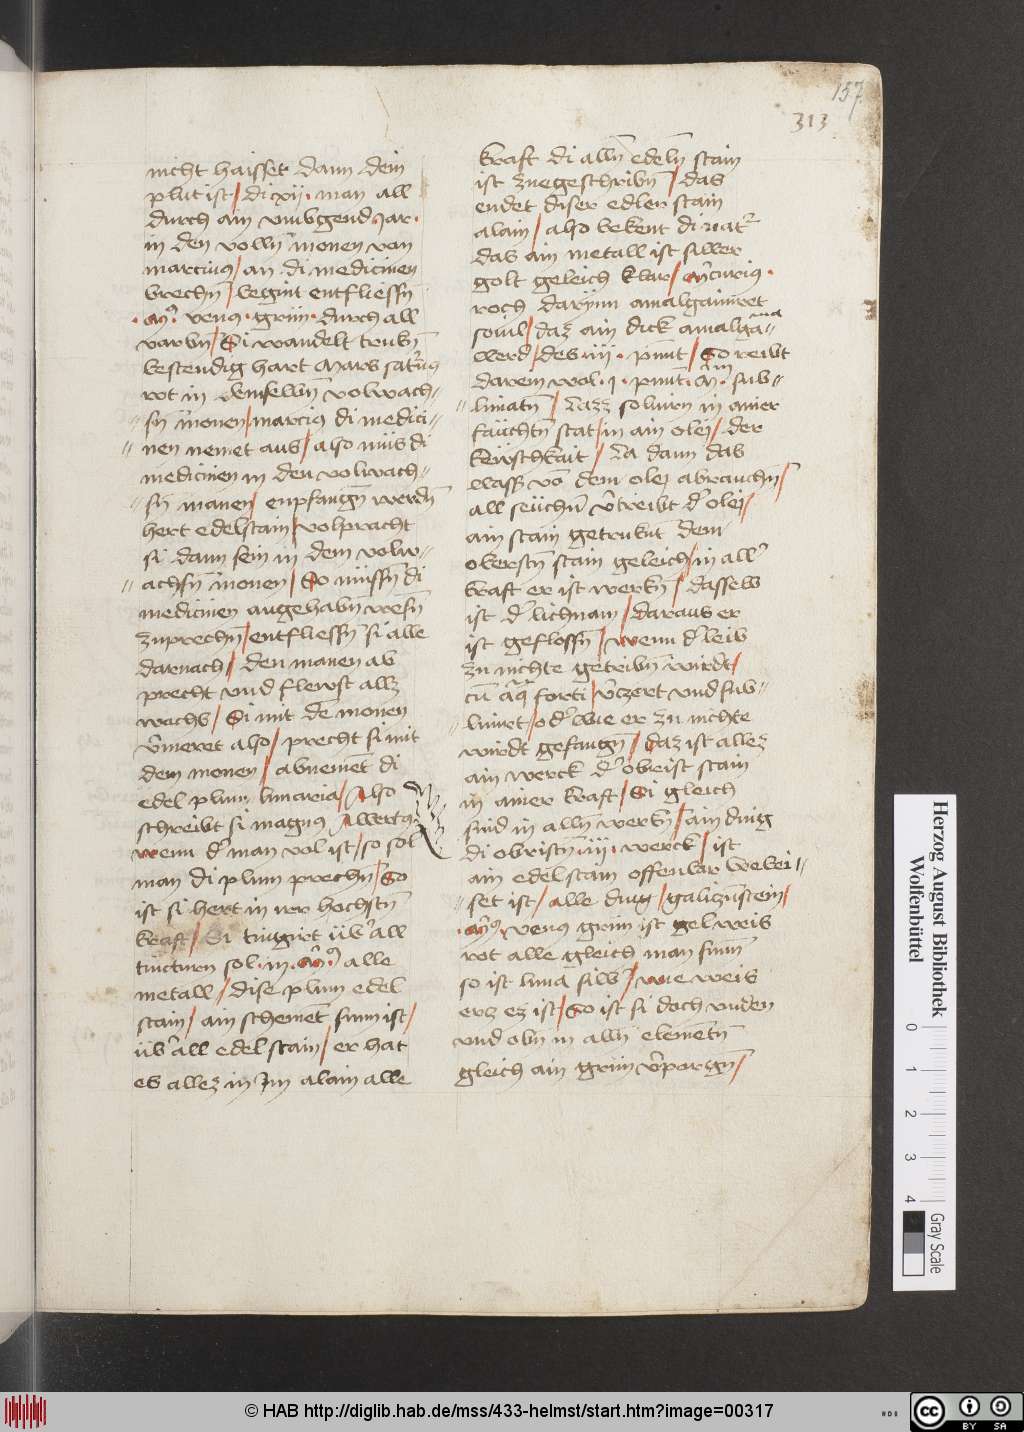 157
313
nicht haisset dann dem
plut ist / di xij · man all
durch ain vmbgend Jar ·
in den volln monen von
marcius / an di medicinen
brechn̄ / begint entfliessn̄
venus · grün · durch all
varbn̄ / Si wandelt trubn̄
bestendig hart Mars
rot in demselbn̄ volwach=
sn̄ monen / marcius di medici=
nen nemet aus / also müs di
medicinen in den volwach=
sn̄ manen / enpfangn̄ werdn̄
hert edelstain / volpracht
si dann sein in dem volw=
achsn̄ monen / So müssn̄ di
medicinen angehabn̄ wesn̄
zuprechn̄ / entfliessn̄ si alle
darnach / den manen ab
precht vnd flewst allz
wachs / Si mit dē monen
also / precht si mit
dem monen / abnemēt di
edel plum lunaria / Also
schreibt si magnus Albertus
wenn d' man vol ist / so sol
man di plum prechn̄ / So
ist si hert in irer hochstn̄
kraft / Si tingirt üb'all
tincturn sol · in · alle
metall / dise plum edel
stain / ain schemēt sunn ist /
üb'all edelstain / er hat
es allez in Im alain alle
kraft di alln̄ edeln̄ stain
ist zuegeschribn̄ / das
endet diser edler stain
alain / also bekent di nat'
das ain metall ist silber
golt geleich klar /
roch darynn amalgamiret
souil / daz ain dick amalgā=
ma
werd / des iiij · pmīt / So reibt
darein wol · j · pmīt · sub=
limatn̄ / Lazz soluirn in ainer
fäuchtn̄ stat / in ain olej / der
kewschkait / La dann das
wass' vō dem olej abrauchn̄ /
all seüchn̄ v̄treibt d' olej /
ain stain getruknt dem
oberstn̄ stain geleich / in all'
kraft er ist werkn̄ / dasselb
ist d' lichnam / daraus er
ist geflossn̄ / wenn d' leib
zu nichte getribn̄ wirdt /
cū aq̄ forti / v̄czert vnd sub=
limirt / od' wie er zu nichte
wirdt gefangn̄ / daz ist allez
ain werck d' obrist stain
in ainer kraft / Si gleich
sind in alln̄ werkn̄ / ain ding
di obristn̄ iiij · werck / ist
ain edelstain offenbar bewei=
set ist / alle ding / galiczn̄stein /
venus grün ist gel weis
rot alle gleich man sinn̄
so ist luna silb' / wie weis
ercz ez ist / So ist si doch vnden
vnd obn̄ in alln̄ elemētn̄
gleich ain grün v̄porgn̄ /
Herzog August Bibliothek
Wolfenbüttel
0 1 2 3 4
Gray Scale
© HAB http://diglib.hab.de/mss/433-helmst/start.htm?image=00317
HDB
cc BY SA